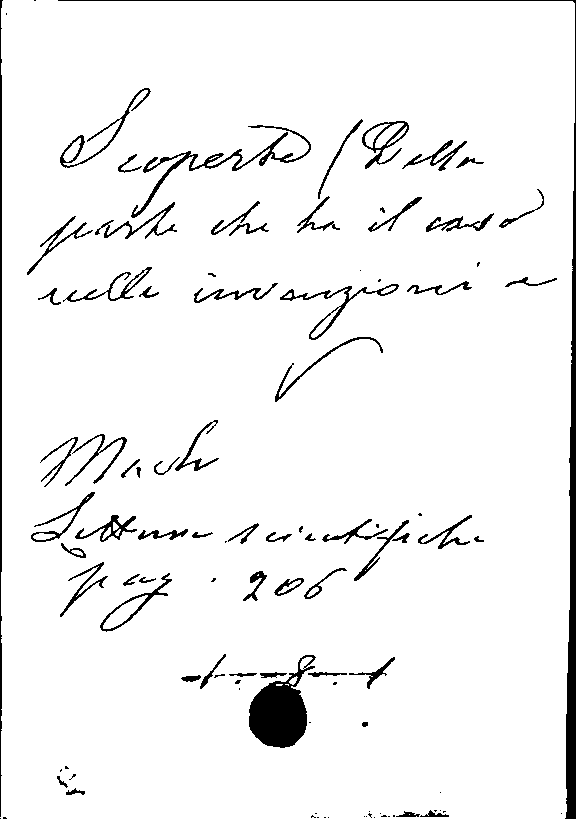 Scoperte (Della
parte che ha il caso
nelle invenzioni e
Mach
Letture scientifiche
pag. 206